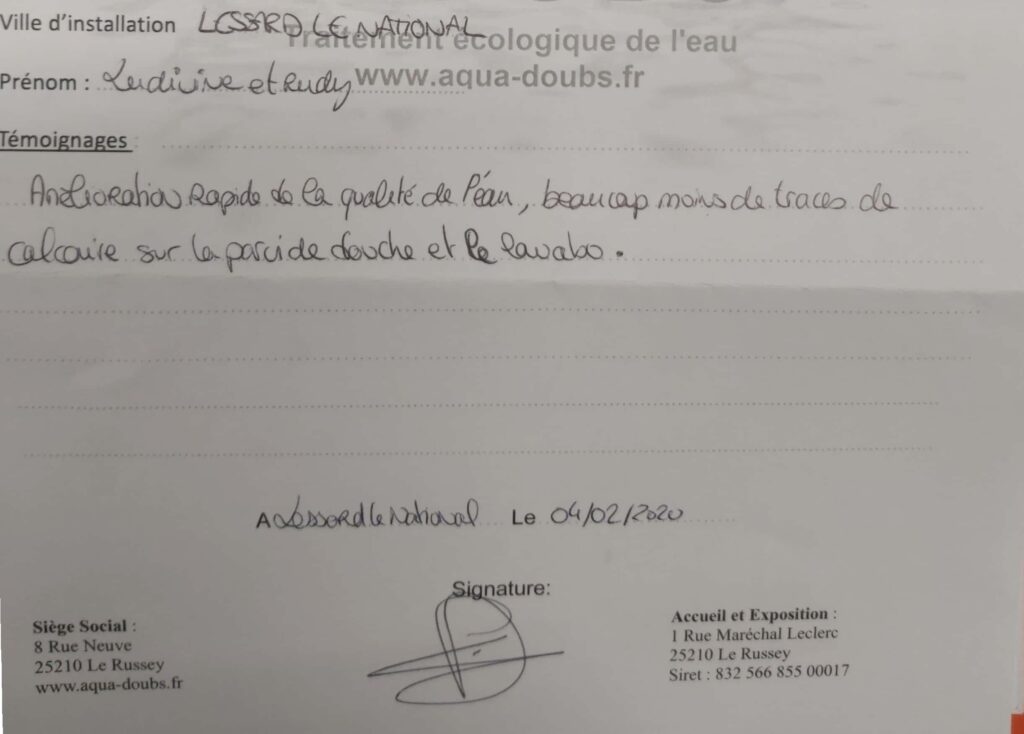 Traitement écologique de l'eau
Ville d'installation LESSARD LE NATIONAL
www.aqua-doubs.fr
Prénom : Ludivine et Rudy
Témoignages
Amélioration Rapide de la qualité de l'éau, beaucap moins de traces de
calcaire sur la paroi de douche et le lavabo.
A Lessard le National Le 04/02/2020
Signature:
Siège Social :
8 Rue Neuve
25210 Le Russey
www.aqua-doubs.fr
Accueil et Exposition :
1 Rue Maréchal Leclerc
25210 Le Russey
Siret : 832 566 855 00017